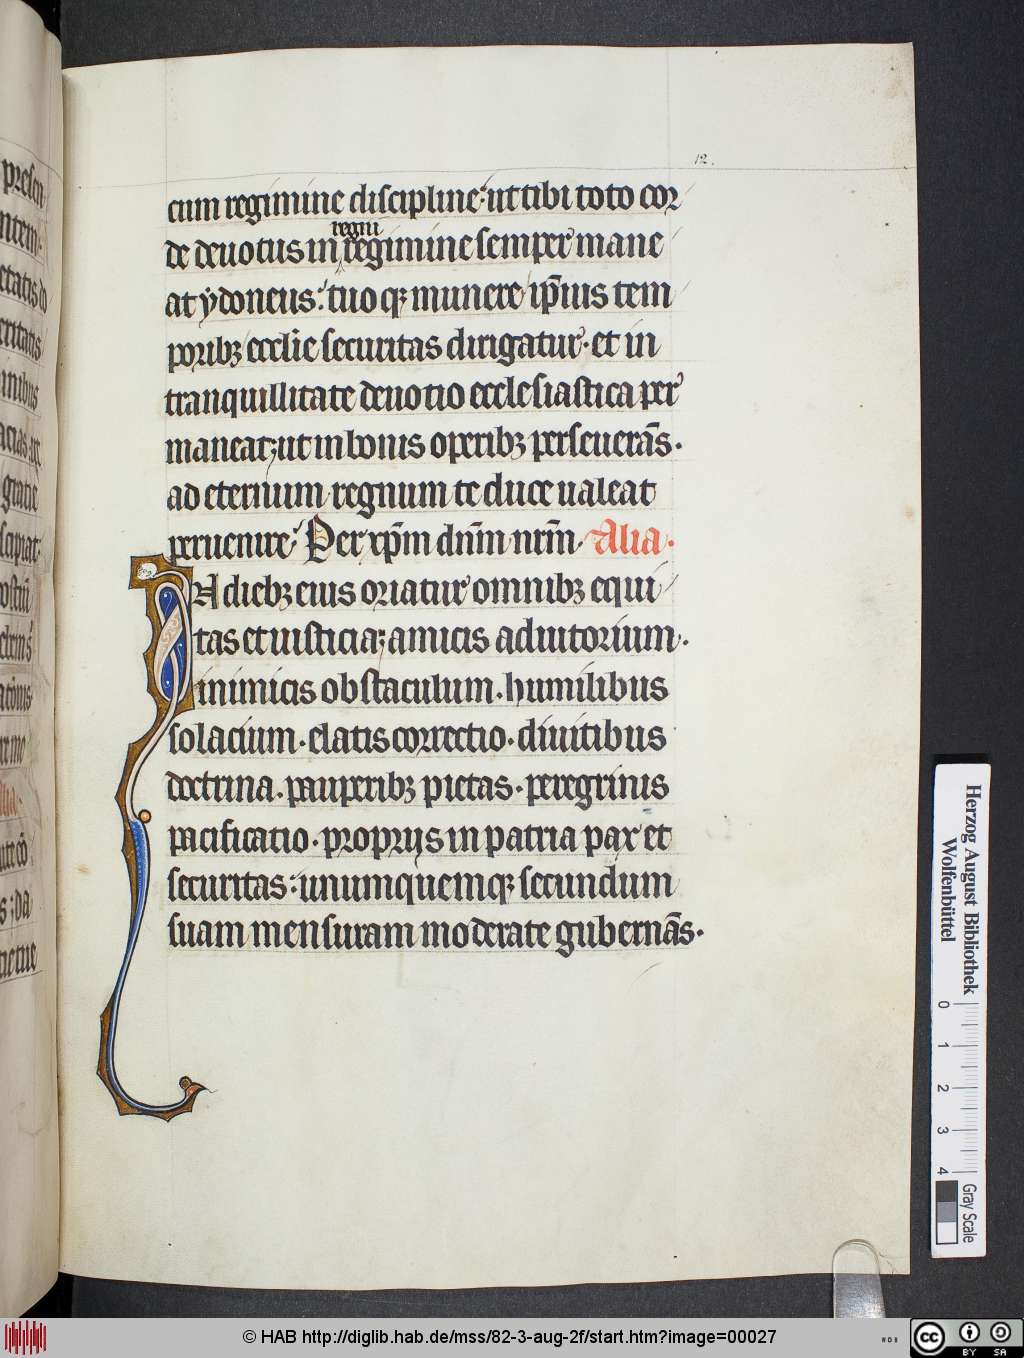 presen
ntem
etatis do
eritatis
inibus
gratie
12.
cum regimine discipline ut tibi toto cor
regni
de deuotus in regimine semper mane
at ydoneus: tuoqꝫ munere ip̄ius tem
poribꝫ eccl̄ie securitas dirigatur· et in
tranquillitate deuotio ecclesiastica per
maneat; ut in bonis operibꝫ perseuerās·
ad eternum regnum te duce ualeat
peruenire· Per xp̄m dn̄m nr̄m· Alia·
IN diebꝫ eius oriatur omnibꝫ equi
tas et iusticia; amicis adiutorium·
inimicis obstaculum· humilibus
solacium· elatis correctio· diuitibus
doctrina· pauperibꝫ pietas· peregrinis
pacificatio· proprijs in patria pax et
securitas: unumquemqꝫ secundum
suam mensuram moderate gubernās·
Herzog August Bibliothek
Wolfenbüttel
0 1 2 3 4
Gray Scale
© HAB http://diglib.hab.de/mss/82-3-aug-2f/start.htm?image=00027
WDB
cc BY SA